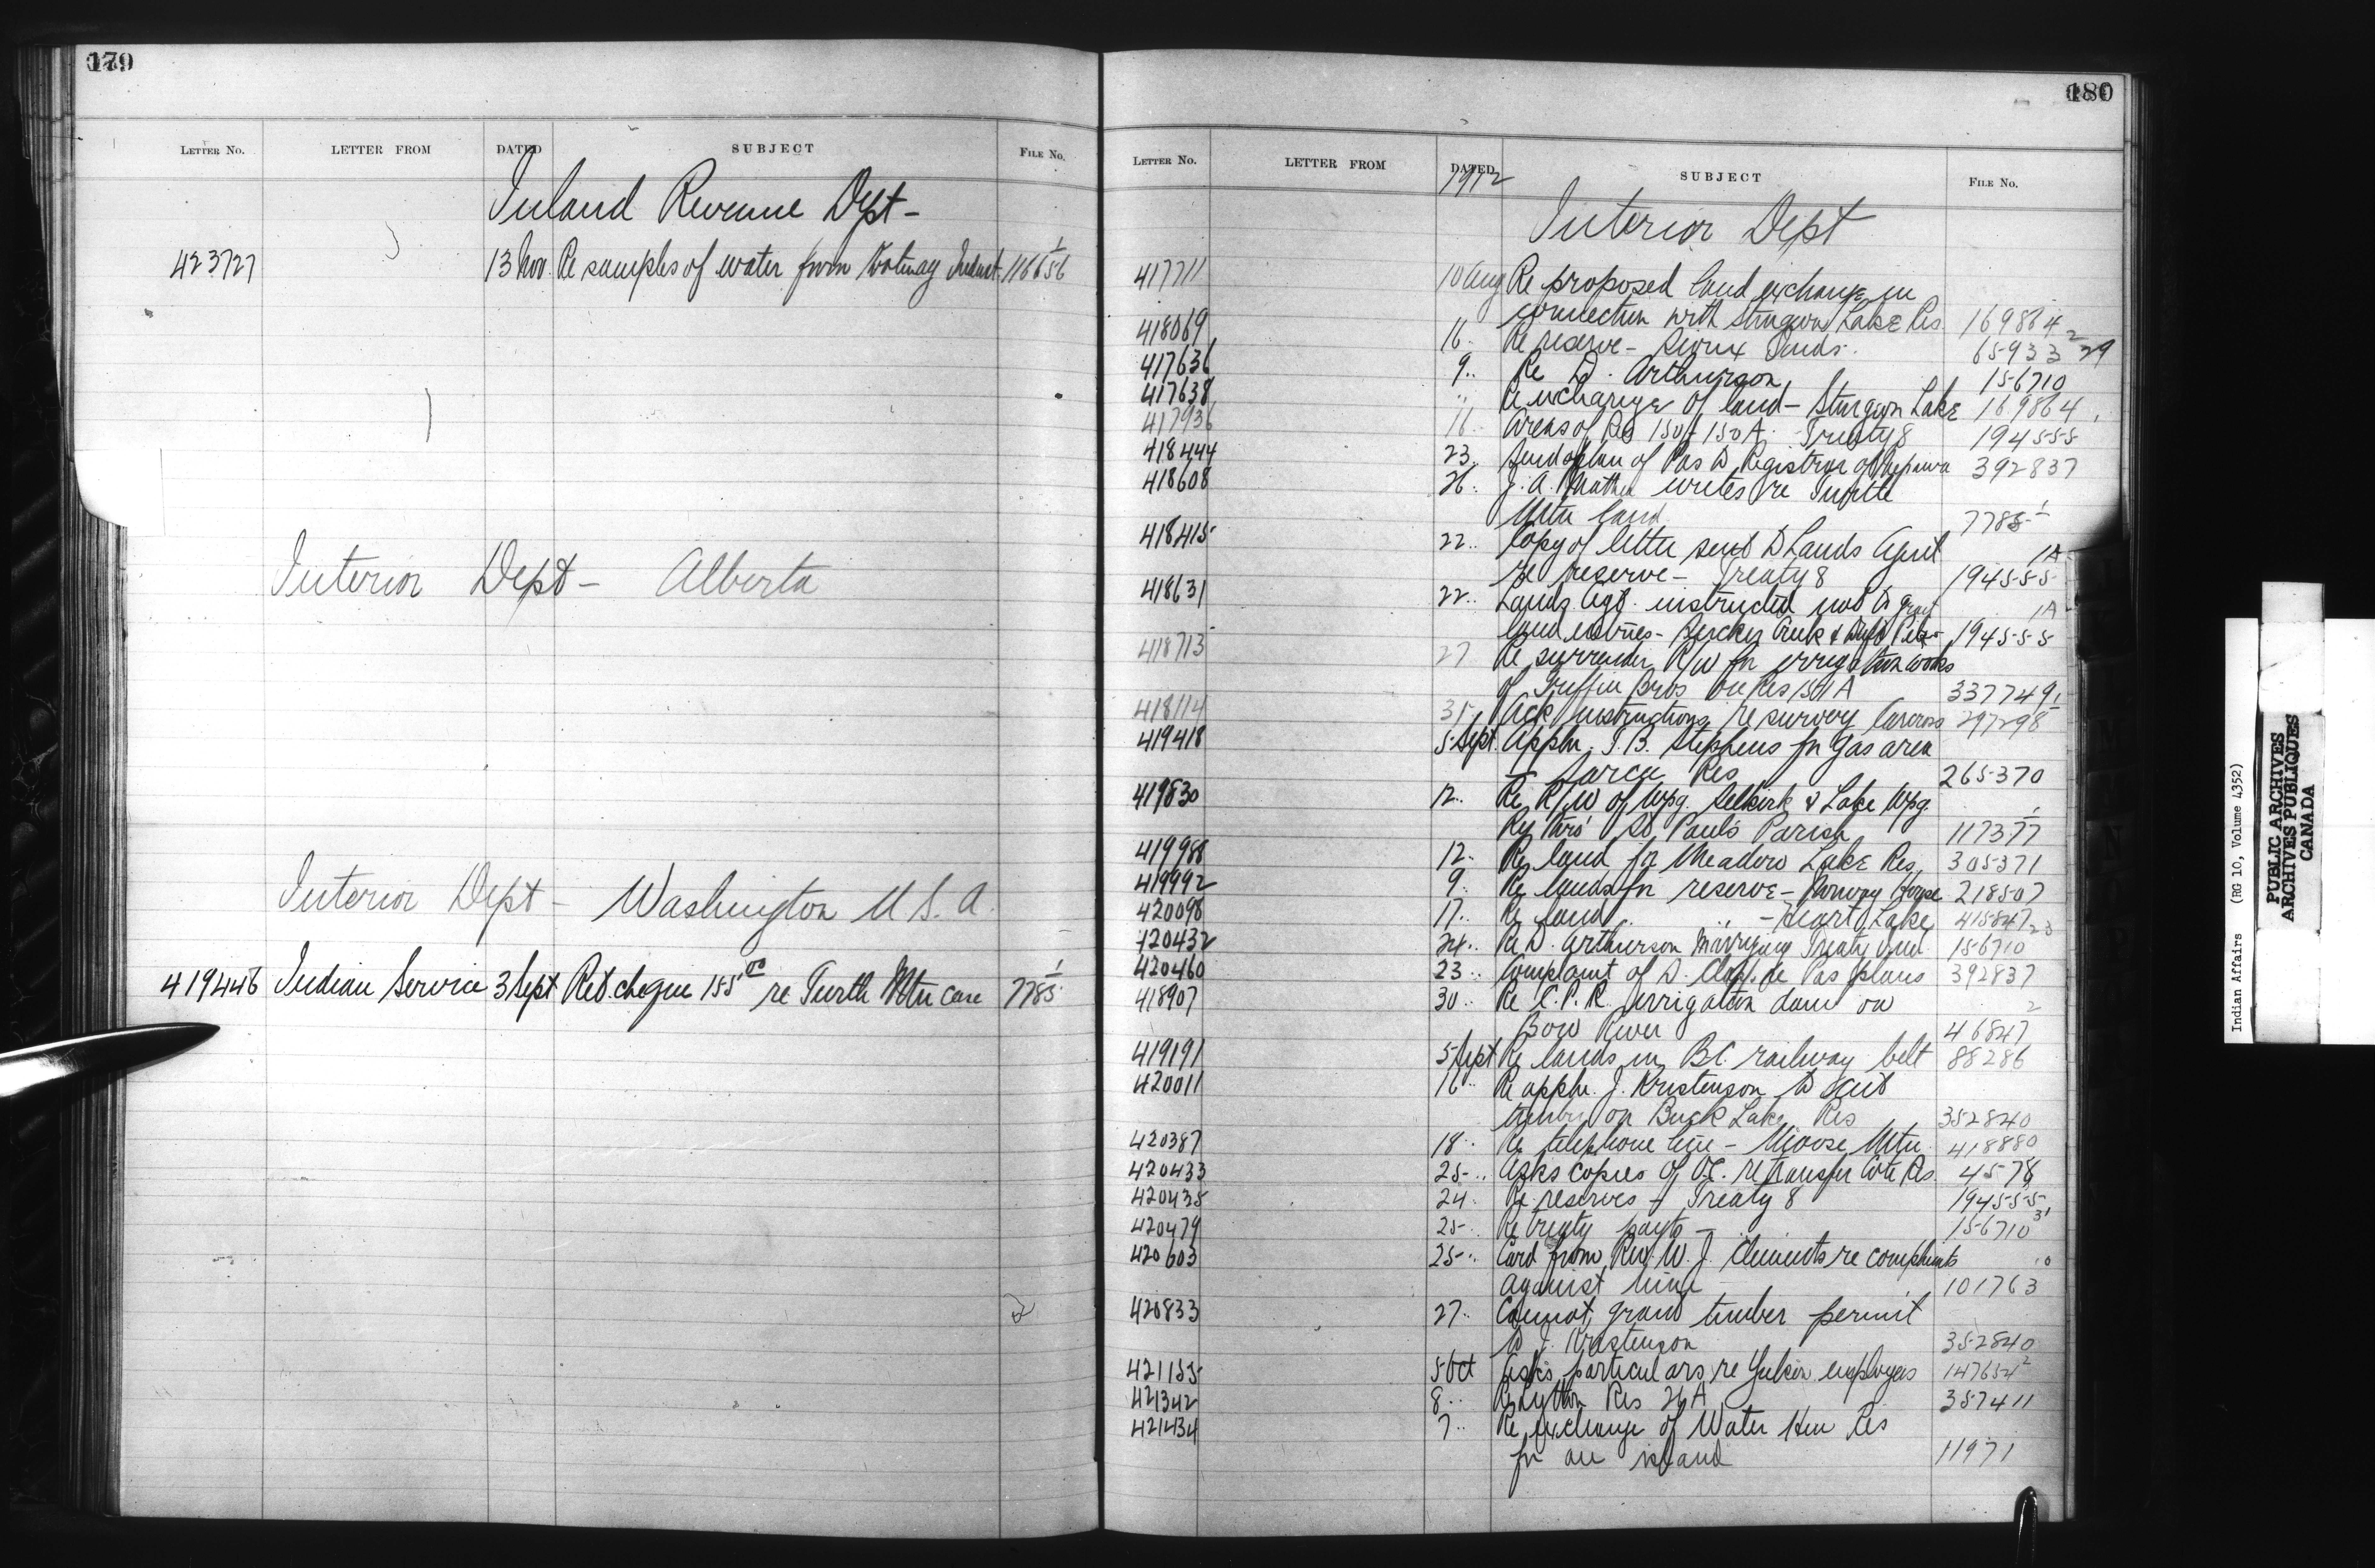 179
LETTER NO. LETTER FROM DATED SUBJECT FILE No.
Inland Revenue Dept -
423727 13 Nov. Re samples of water from Kootenay Indust. 116656 1
Interior Dept - Alberta
Interior Dept - Washington U.S.A.
419446 Indian Service 3 Sept Retd. cheque 155 00 re Turtle Mtn case 7785 1
180
LETTER No. LETTER FROM DATED SUBJECT FILE No.
1912
Interior Dept
417711 10 Aug Re proposed land exchange in
connection with Sturgeon Lake Res 169864
418069 16 Re reserve - Sioux Inds. 65933 2 29
417636 9 Re D. Arthurson 156710
417638 " Re exchange of land - Sturgeon Lake 169864
417936 16 Areas of Res 150 + 150A. Treaty 8 194555
418444 23 Send plan of Pas to Registrar of Neepawa 392837
418608 26 J. A. writes re Turtle
Mtn land 7785 1
418415 22 Copy of letter sent to Lands Agent
re reserve - Treaty 8 194555 1A
418631 22 Lands Agt. instructed not to grant
land entries - Sucker Creek & 194555 1A
418713 27 Re surrender R/W for irrigation works
of Griffin Bros on Res 337749
418114 31 Ack instructions re survey Carcross 297298
419418 5 Sept. Appln. T. B. Stephens for gas area
- Sarcee Res 265370
419830 12 Re R/W of Wpg. Selkirk & Lake Wpg.
Ry thro' St Paul's Parish 117377 1
419988 12 Re land for Meadow Lake Res, 305371
419992 9 Re lands for reserve - Norway House 218507
420098 17 Re land " " - Heart Lake 415847
420432 24 Re D. Arthurson marrying Treaty Ind. 156710 23
420460 23 Complaint of D. re Pas plans 392837
418907 30 Re C.P.R. irrigation dam on
Bow River 46847 2
419191 5 Sept Re lands in B.C. railway belt 88286
420011 16 Re appln. J. Kristenson to cut
timber on Buck Lake Res 352840
420387 18 Re telephone line - Moose Mtn 418880
420433 25 Asks copies of O.C. re transfer Cote Res. 4578
420435 24 Re reserves - Treaty 8 194555
420479 25 Re treaty payts - 156710 31
420603 25 Card from Rev. W. J. Clements re complaints
against him 101763
420833 27 Cannot grant timber permit
to J. Kristenson 352840
421155 5 Oct Asks particulars re Yukon employees 147654 2
421342 8 Re Lytton Res 26A 357411
421434 7 Re exchange of Water Hen Res
for an island 11971
Indian Affairs (RG 10, Volume 4352)
PUBLIC ARCHIVES
ARCHIVES PUBLIQUES
CANADA